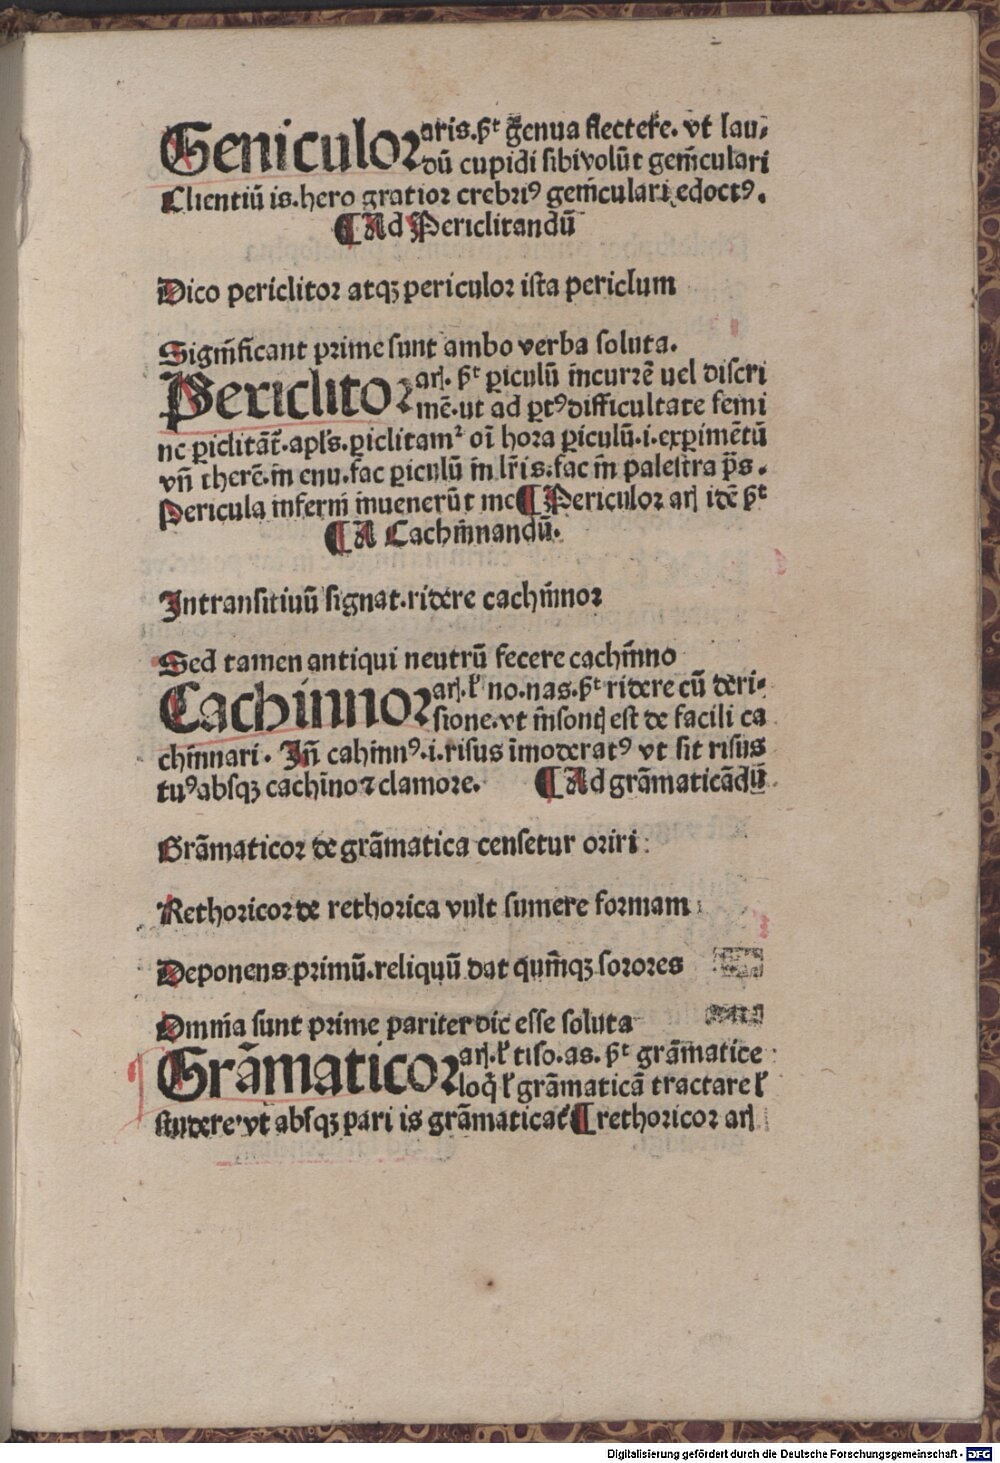 Geniculor aris.ꝑᵗ genua flectere. vt lau-
dū cupidi sibi volūt gem̄culari
Clientiū is. hero gratior crebriꝰ gem̄culari edoctꝰ.
¶Ad Periclitandū
Dico periclitor atqꝫ periculor ista periclum
Sigm̄ficant prime sunt ambo verba soluta.
Periclitor arꝭ. ꝑᵗ ꝑiculū incurrē uel discri
mē. ut ad ꝑtꝰ difficultate femi
ne ꝑiclitāt̄. apl̄s. ꝑiclitamᷣ oī hora ꝑiculū .i. exꝑimētū
vn̄ therē. in enu. fac ꝑiculū in lr̄is. fac in palestra p̄s.
Pericula inferni inuenerūt me ¶Periculor arꝭ idē ꝑᵗ
¶A Cachin̄nandū.
Intransitiuū signat. ridere cachin̄nor
Sed tamen antiqui neutrū fecere cachin̄no
Cachinnor arꝭ. ł no. nas. ꝑᵗ ridere cū deri-
sione. vt insontꝭ est de facili ca
chin̄nari. In̄ cahinnꝰ .i. risus īmoderatꝰ vt sit risus
tuꝰ absqꝫ cachīno ⁊ clamore. ¶Ad grāmaticādū
Grāmaticor de grāmatica censetur oriri
Rethoricor de rethorica vult sumere formam
Deponens primū. reliquū dat qum̄qꝫ sorores
Omnia sunt prime pariter dic esse soluta
Grāmaticor arꝭ. ł tiso. as. ꝑᵗ grāmatice
loq̄ ł grāmaticā tractare ł
studere. vt absqꝫ pari is grāmaticat ¶rethoricor arꝭ
Digitalisierung gefördert durch die Deutsche Forschungsgemeinschaft - DFG